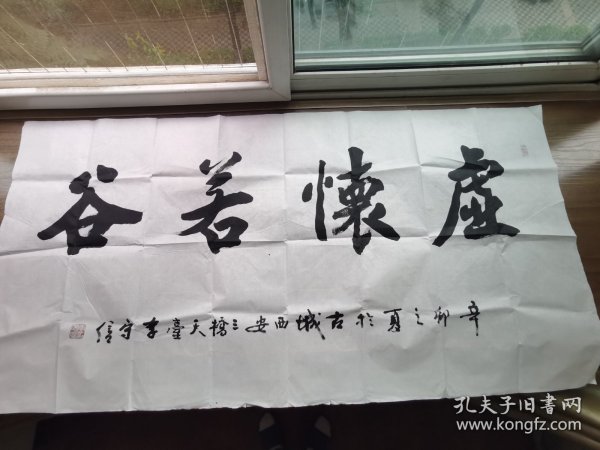 虛懷若谷
辛卯之夏於古城西安三橋天臺李守信
孔夫子旧書网
www.kongfz.com